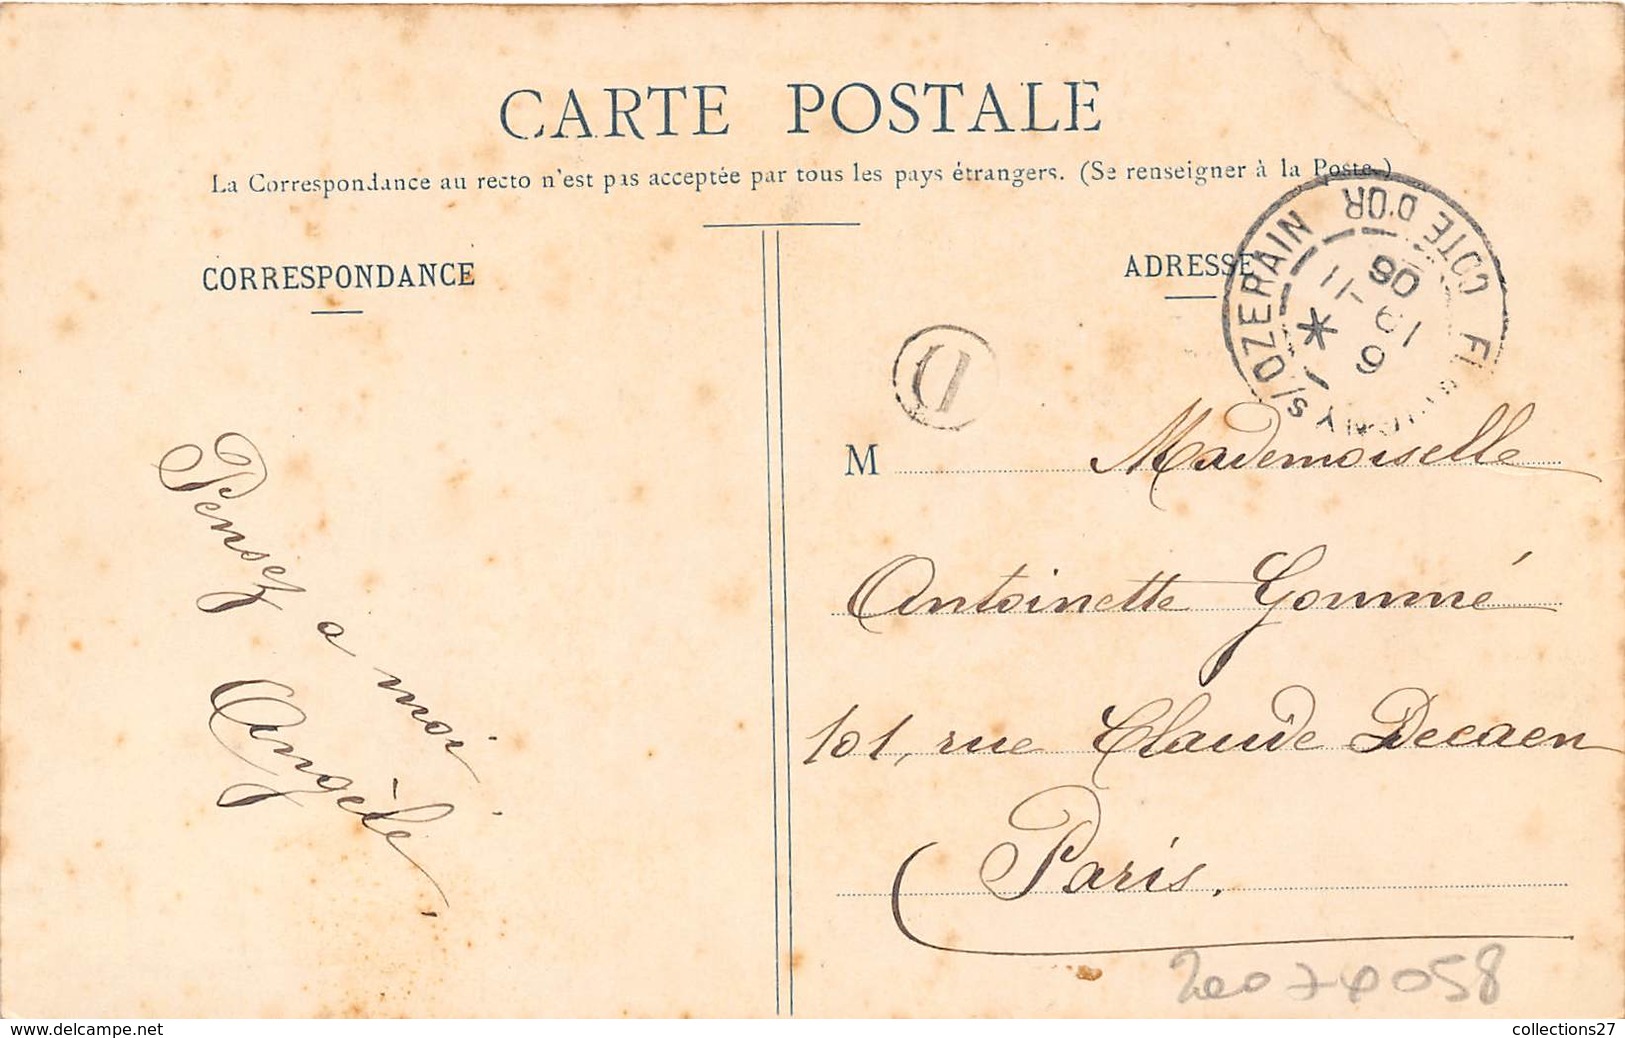 CARTE POSTALE
La Correspondance au recto n'est pas acceptée par tous les pays étrangers. (Se renseigner à la Poste.)
CORRESPONDANCE
ADRESSE
S/OZERAIN
COTE D'OR
6
19-11
08
D
Pensez a moi
Angèle.
M Mademoiselle
Antoinette Gommé
101, rue Claude Decaen
Paris.
www.delcampe.net
collections27